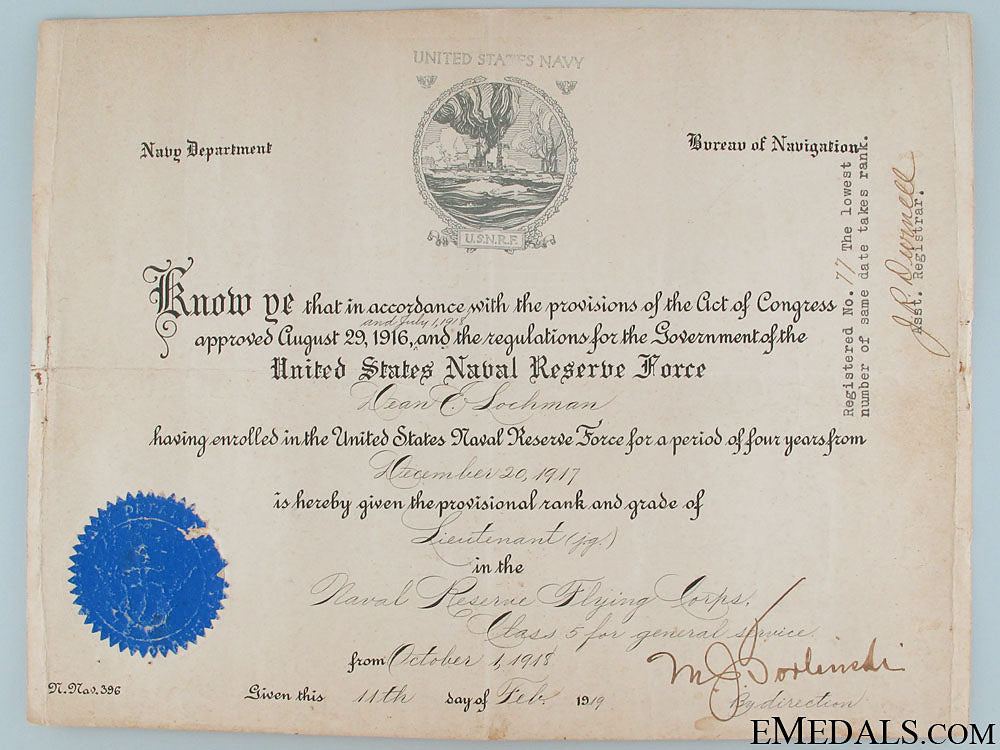 UNITED STATES NAVY
U.S.N.R.F.
Navy Department
Bureau of Navigation
Know ye that in accordance with the provisions of the Act of Congress
and July 1, 1918
approved August 29, 1916, and the regulations for the Government of the
United States Naval Reserve Force
Dean E. Lochman
having enrolled in the United States Naval Reserve Force for a period of four years from
December 20, 1917
is hereby given the provisional rank and grade of
Lieutenant (j.g.)
in the
Naval Reserve Flying Corps,
Class 5 for general service
from October 1, 1918
Given this 11th day of Feb. 1919
By direction
N.Nav.396
Registered No. 77 The lowest
number of same date takes rank.
Asst. Registrar.
EMEDALS.COM